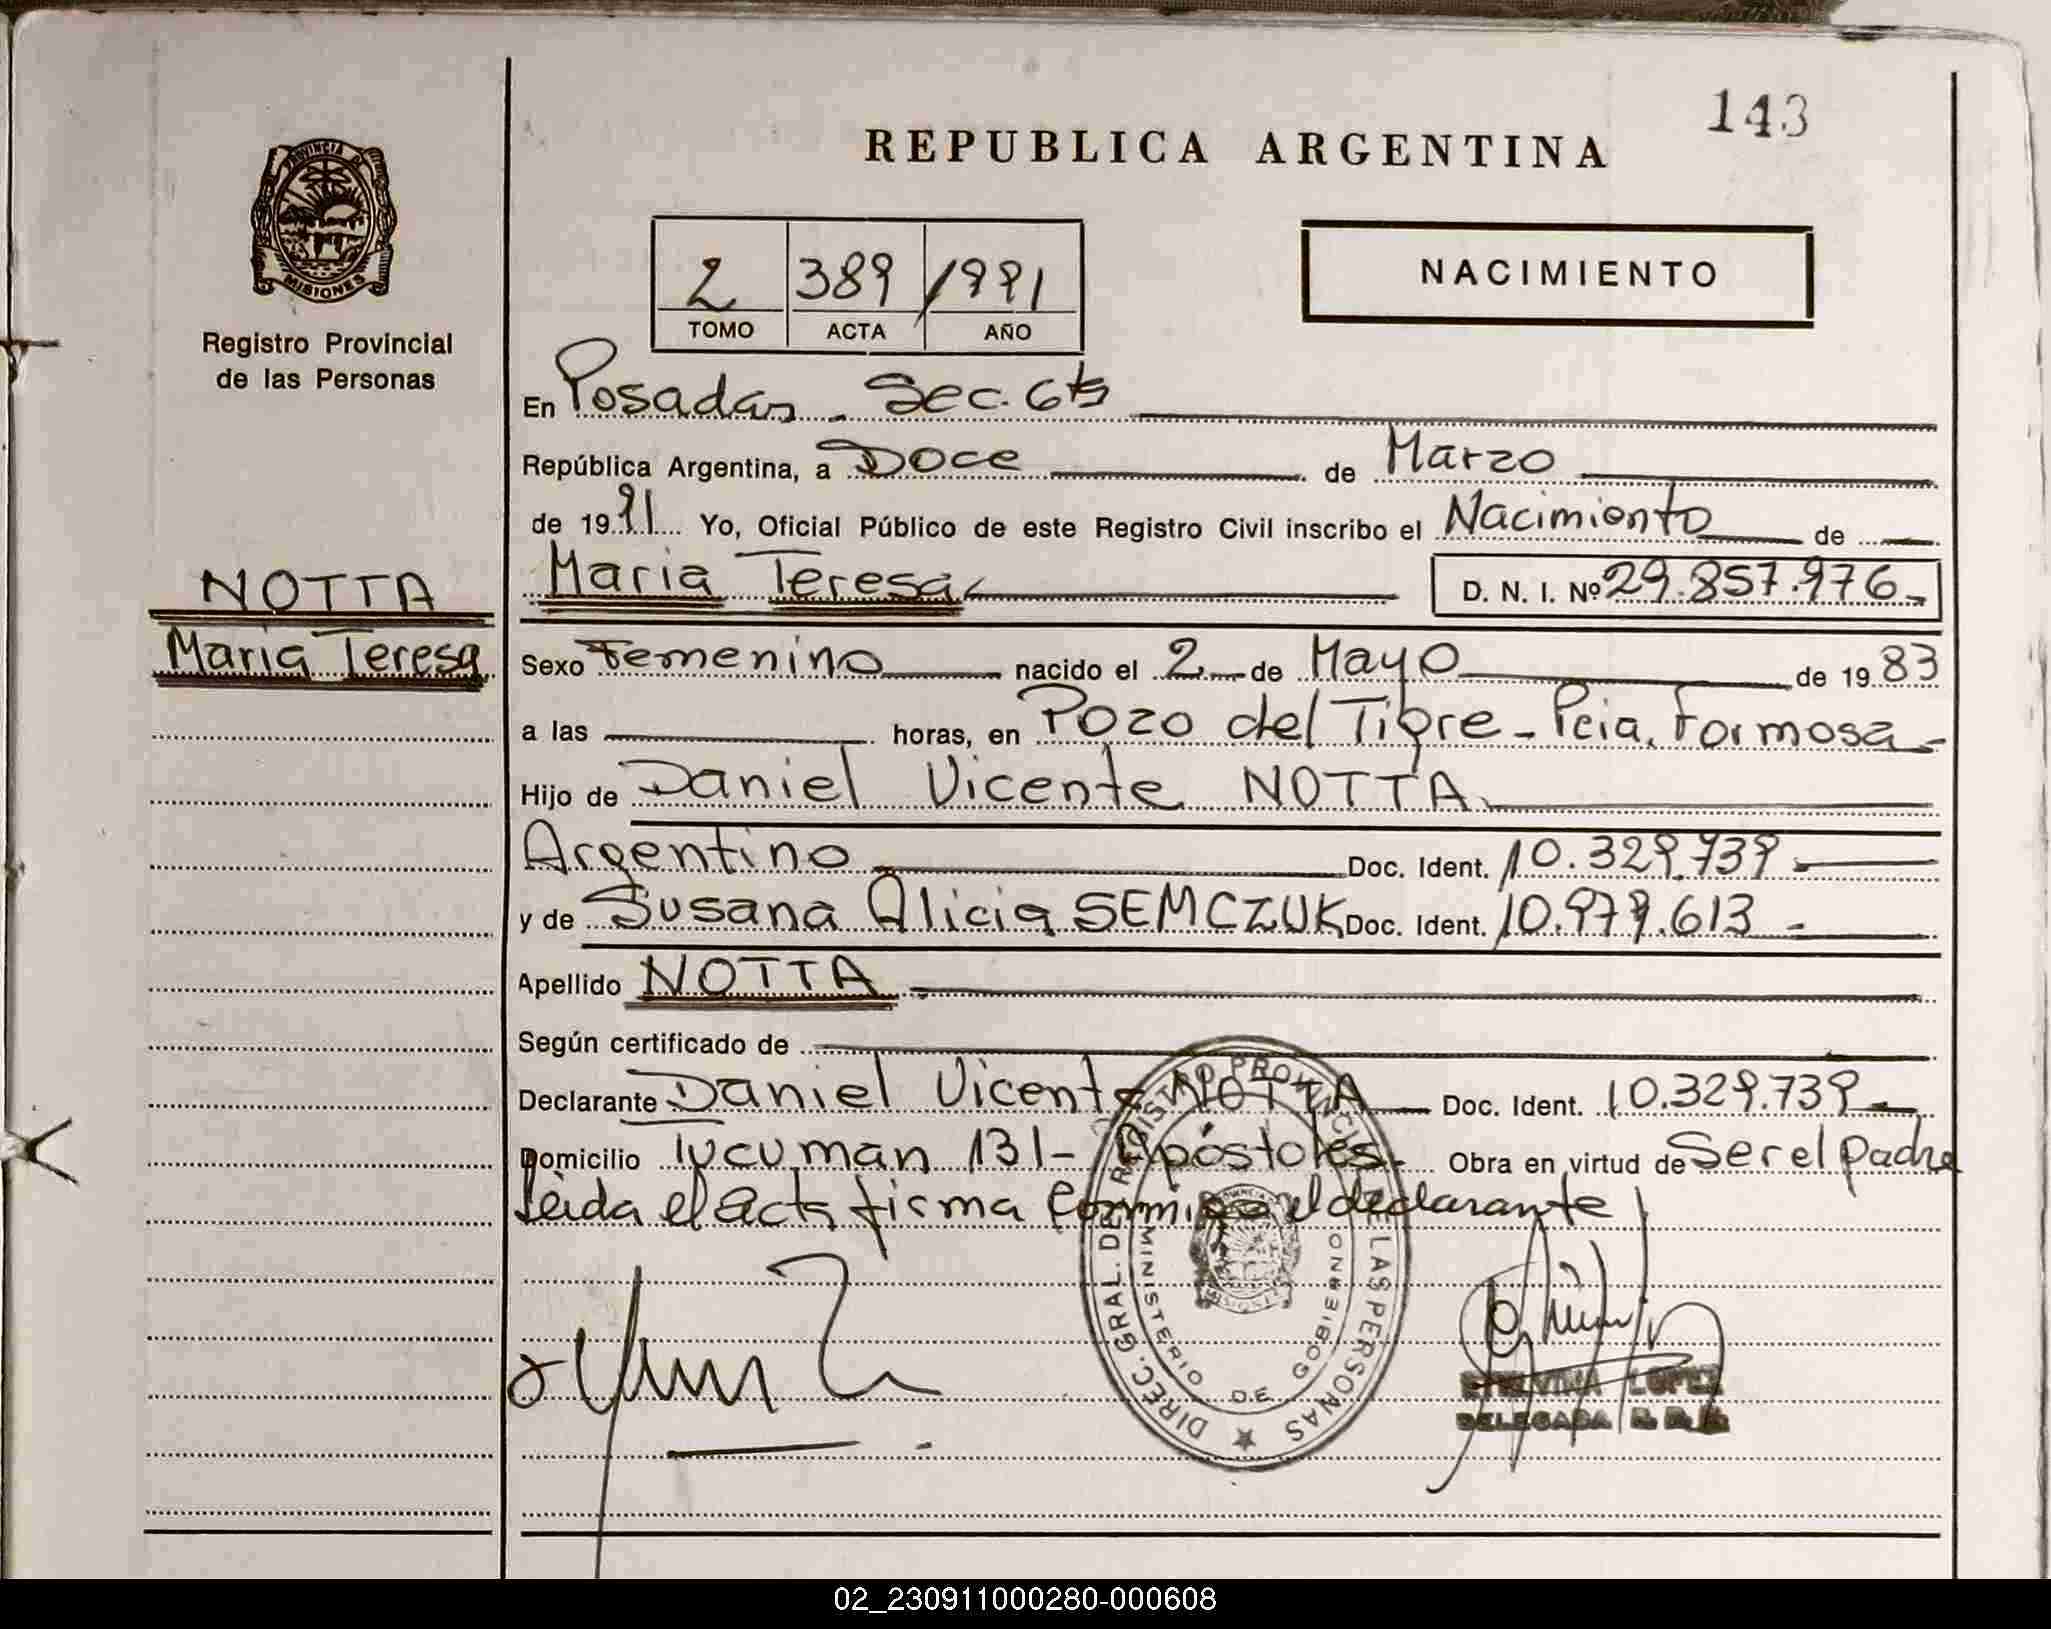 143
REPUBLICA ARGENTINA
PROVINCIA DE
MISIONES
Registro Provincial
de las Personas
NACIMIENTO
2 389 1991
TOMO ACTA AÑO
En Posadas - Sec. 6ta
República Argentina, a Doce de Marzo
de 1991 Yo, Oficial Público de este Registro Civil inscribo el Nacimiento de
NOTTA
Maria Teresa
Maria Teresa D. N. I. Nº 29.857.976-
Sexo Femenino nacido el 2 de Mayo de 1983
a las horas, en Pozo del Tigre - Pcia. Formosa-
Hijo de Daniel Vicente NOTTA
Argentino Doc. Ident. 10.329.739-
y de Susana Alicia SEMCZUK Doc. Ident. 10.979.613-
Apellido NOTTA
Según certificado de
Declarante Daniel Vicente NOTTA Doc. Ident. 10.329.739-
Domicilio Tucuman 131- Apóstoles- Obra en virtud de Ser el padre
Leida el acta firma conmigo el declarante
DIREC. GRAL. DE REGISTRO PROVINCIAL DE LAS PERSONAS
MINISTERIO DE GOBIERNO
MISIONES
ETELVINA LOPEZ
DELEGADA R.P.P.
02_230911000280-000608